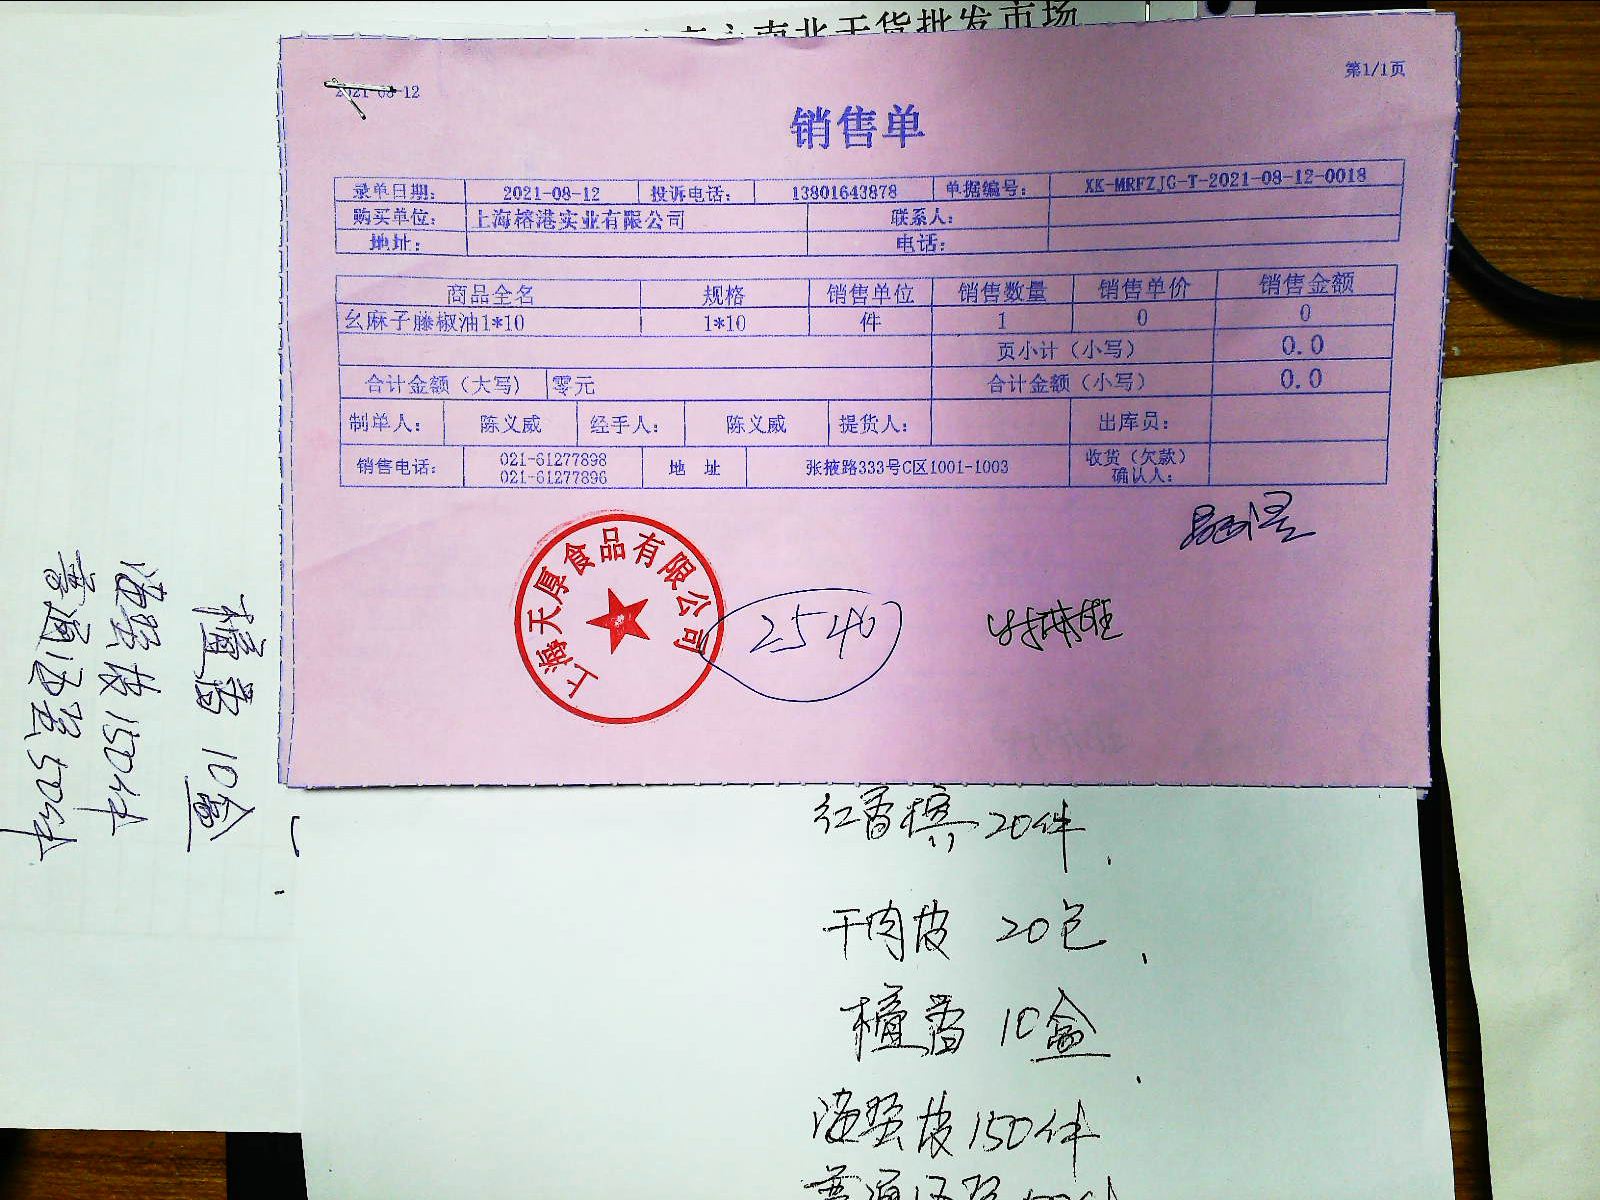 南北干货批发市场
第1/1页
2021-08-12
销售单
录单日期： 2021-08-12 投诉电话： 13801643878 单据编号： XK-MRFZJG-T-2021-08-12-0018
购买单位： 上海榕港实业有限公司 联系人：
地址： 电话：
商品全名 规格 销售单位 销售数量 销售单价 销售金额
幺麻子藤椒油1*10 1*10 件 1 0 0
页小计（小写） 0.0
合计金额（大写） 零元 合计金额（小写） 0.0
制单人： 陈义威 经手人： 陈义威 提货人： 出库员：
销售电话： 021-61277898 地 址 张掖路333号C区1001-1003 收货（欠款）
021-61277896 确认人：
上海天厚食品有限公司
2540
20件
干肉皮 20包
檀香 10盒
海蜇皮 150件
檀香 10盒
海蜇皮 150件